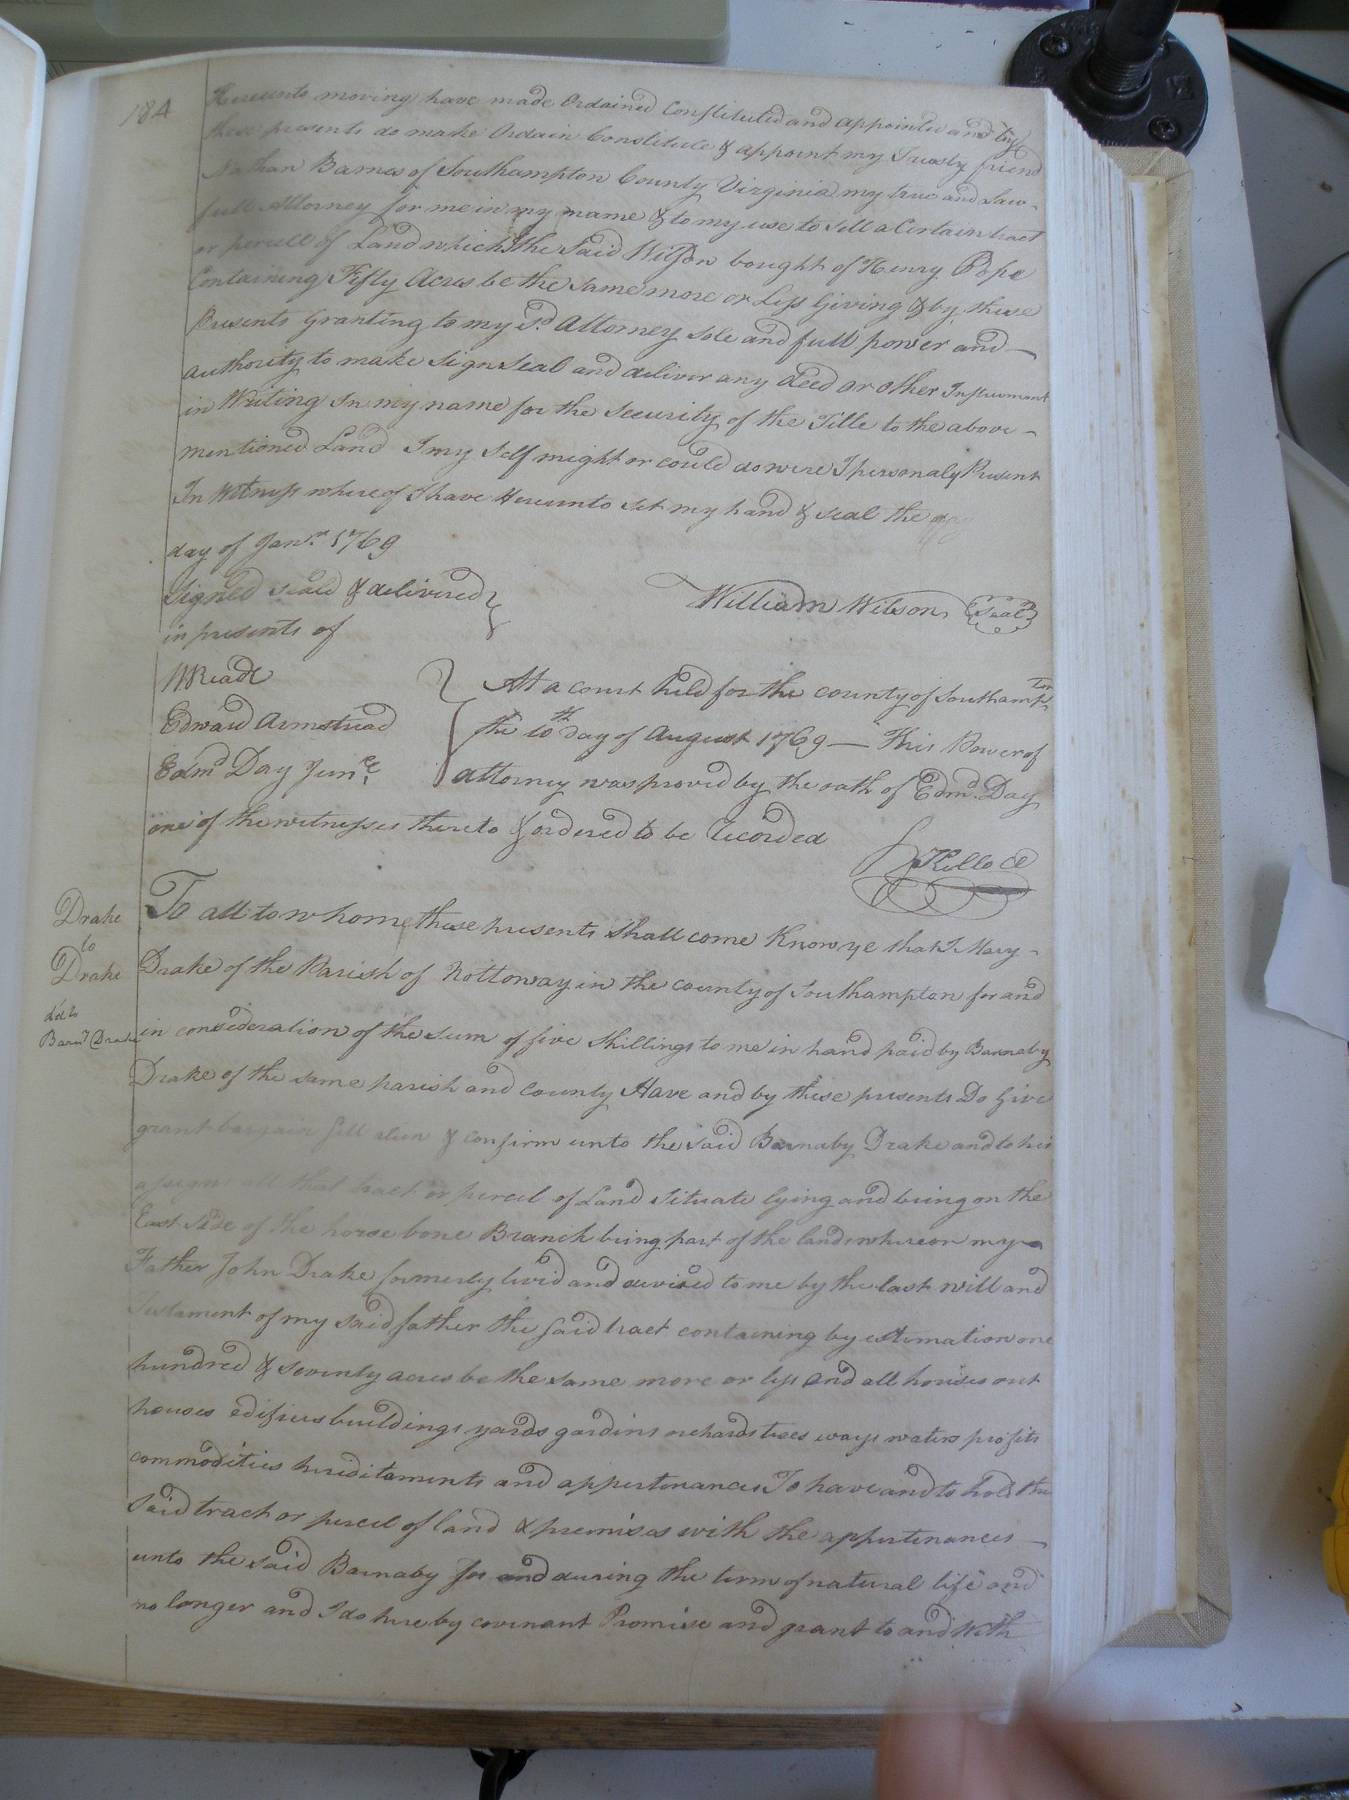 184
Hereunto moving have made Ordained Constituted and appointed and by
these presents do make Ordain Constitute & appoint my Trusty friend
Nathan Barnes of Southampton County Virginia my true and Law-
full Attorney for me in my name & to my use to sell a Certain tract
or percell of Land which the Said Wilson bought of Henry Pope
Containing Fifty Acres be the same more or Less Giving & by these
Presents Granting to my Sd. Attorney sole and full power and
authority to make Sign Seal and deliver any deed or other Instrument
in Writing In my name for the Security of the Title to the above-
mentioned Land I my Self might or could do were I personaly Present
In Witness whereof I have Hereunto Set my hand & seal the
day of Janr. 1769
Signed seald & delivered
in presents of
William Wilson Seal
WReade
Edward Armstead
Edmd Day Junr.
At a court held for the county of Southampton
the 10th day of August 1769 — This Power of
attorney was proved by the oath of Edmd. Day
one of the witnesses thereto & ordered to be Recorded
Kello Cl
Drake
to
Drake
dd to
Barny Drake
To all to whome these presents Shall come Know ye that I Mary
Drake of the Parish of Nottoway in the county of Southampton for and
in consideration of the sum of five Shillings to me in hand paid by Barnaby
Drake of the same parish and county Have and by these presents Do Give
grant bargain Sell alien & confirm unto the said Barnaby Drake and to his
assigns all that tract or percel of Land Situate lying and being on the
East Side of the horse bone Branch being part of the land whereon my
Father John Drake formerly livid and devised to me by the last will and
Testament of my Said father the Said tract containing by estimation one
hundred & seventy acres be the same more or less and all houses out
houses edifices buildings yards gardins orchards trees ways waters profits
commodities hereditaments and appertenances To have and to hold the
Said tract or percel of land & premises with the appertenances
unto the said Barnaby for and during the term of natural life and
no longer and I do hereby covenant Promise and grant to and With